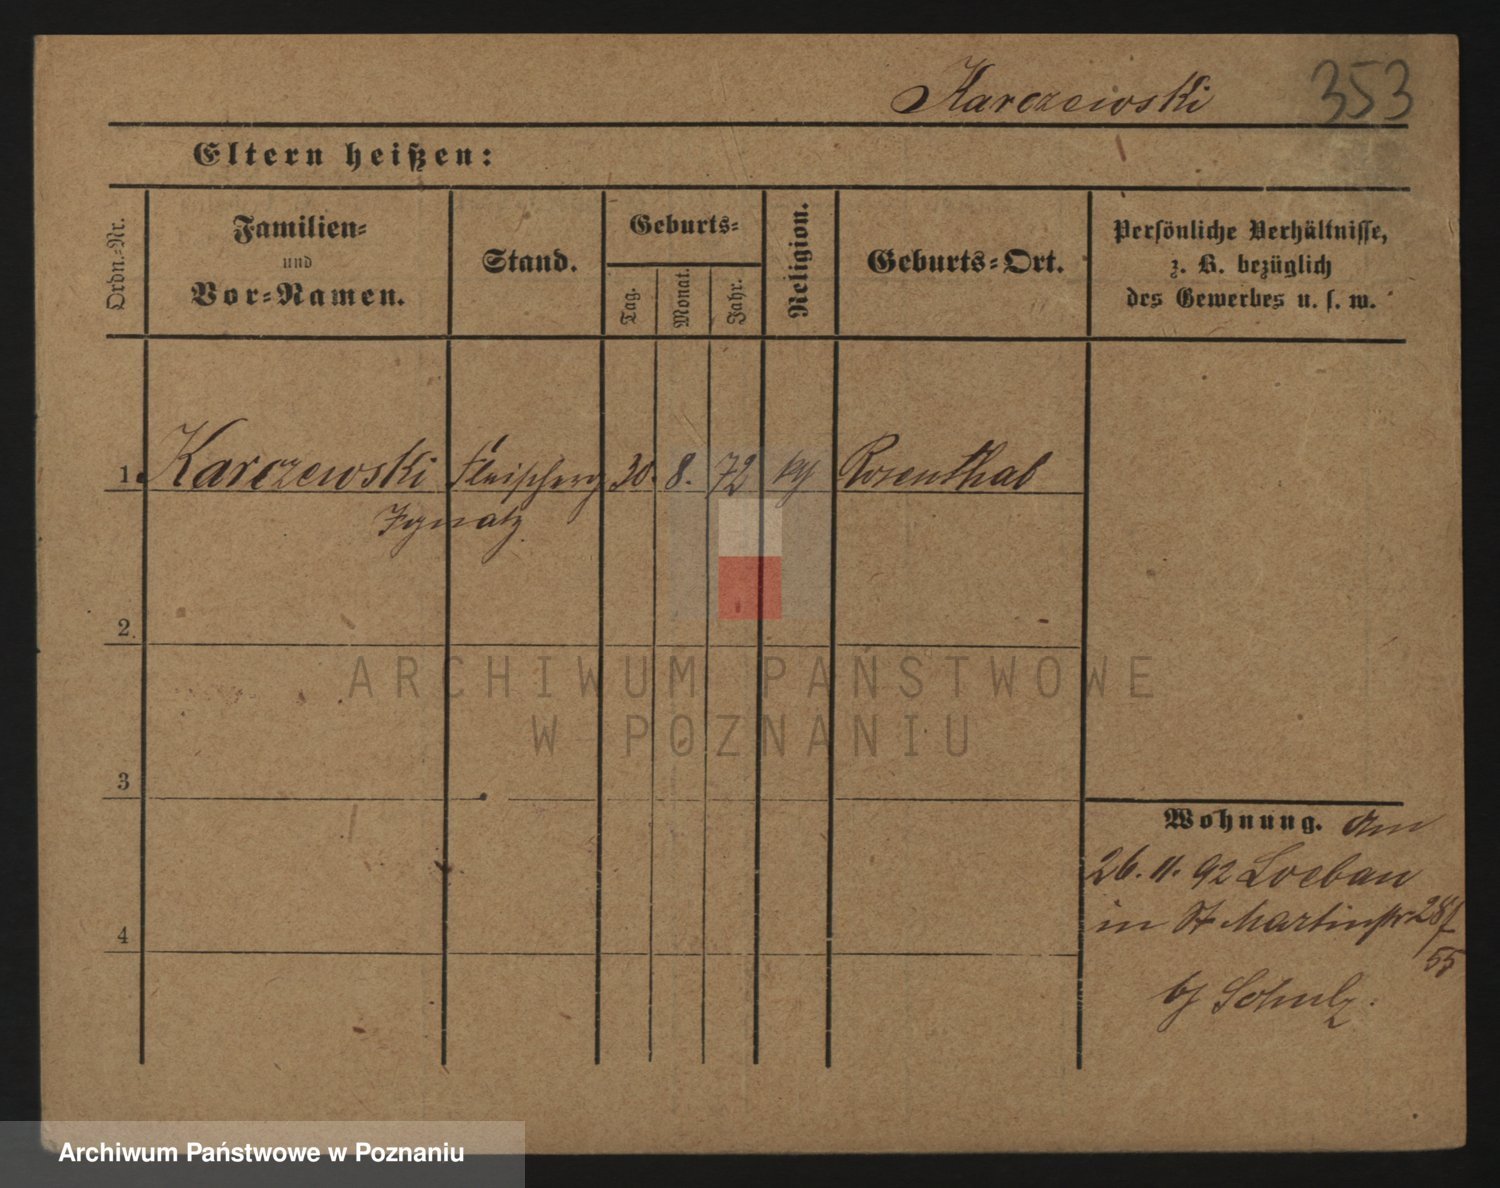 Karczewski 353
Eltern heißen:
Ordn.-Nr.
Familien-
und
Vor-Namen.
Stand.
Geburts-
Tag.
Monat.
Jahr.
Religion.
Geburts-Ort.
Persönliche Verhältnisse,
z. B. bezüglich
des Gewerbes u. s. w.
1. Karczewski Fleischerg 30. 8. 72 kgl Rosenthal
Ignatz
2.
3
4
Wohnung. Am
26. 11. 92 Loebau
in St Martinstr 28/
55
by Schulz.
ARCHIWUM PAŃSTWOWE
W POZNANIU
Archiwum Państwowe w Poznaniu